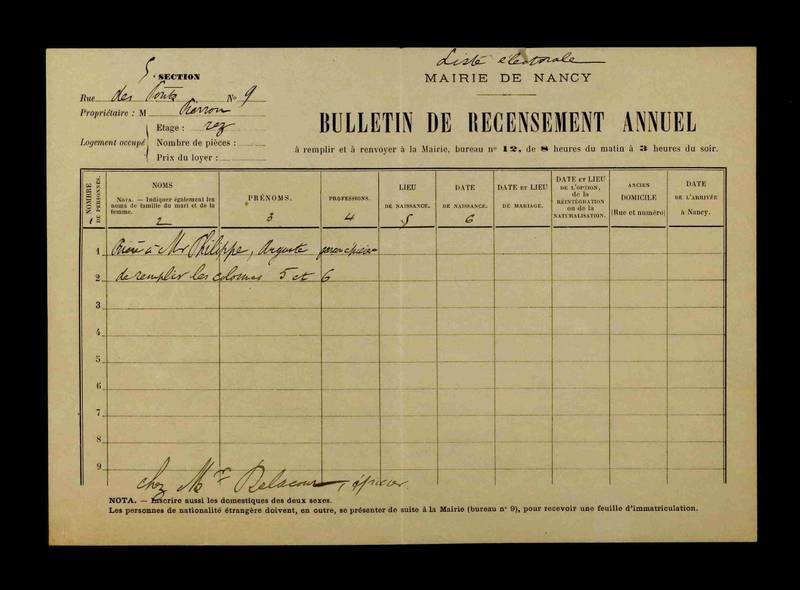 Liste électorale
5e SECTION
MAIRIE DE NANCY
Rue des Ponts No 9
Propriétaire : M Pierron
BULLETIN DE RECENSEMENT ANNUEL
Logement occupé
Etage : rez
Nombre de pièces :
Prix du loyer :
à remplir et à renvoyer à la Mairie, bureau no 12, de 8 heures du matin à 3 heures du soir.
NOMBRE DE PERSONNES.
NOMS
NOTA. — Indiquer également les noms de famille du mari et de la femme.
PRÉNOMS.
PROFESSIONS.
LIEU DE NAISSANCE.
DATE DE NAISSANCE.
DATE ET LIEU DE MARIAGE.
DATE ET LIEU DE L'OPTION, de la RÉINTÉGRATION ou de la NATURALISATION.
ANCIEN DOMICILE (Rue et numéro)
DATE DE L'ARRIVÉE à Nancy.
1 2 3 4 5 6
1 Prière à Mr Philippe, Auguste
2 de remplir les colonnes 5 et 6
3
4
5
6
7
8
9
chez Mr Delacour, épicier
NOTA. — Inscrire aussi les domestiques des deux sexes.
Les personnes de nationalité étrangère doivent, en outre, se présenter de suite à la Mairie (bureau no 9), pour recevoir une feuille d'immatriculation.